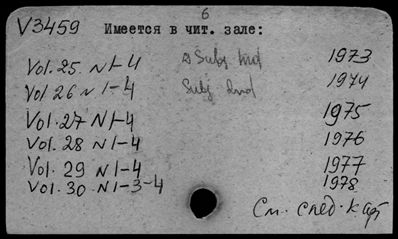 6
V3459 Имеется в чит. зале:
Vol. 25. N 1-4 Subj Ind 1973
Vol 26 N 1-4 Subj Ind 1974
Vol. 27 N 1-4 1975
Vol. 28 N 1-4 1976
Vol. 29 N 1-4 1977
Vol. 30. N 1-3-4 1978
См. след. карт